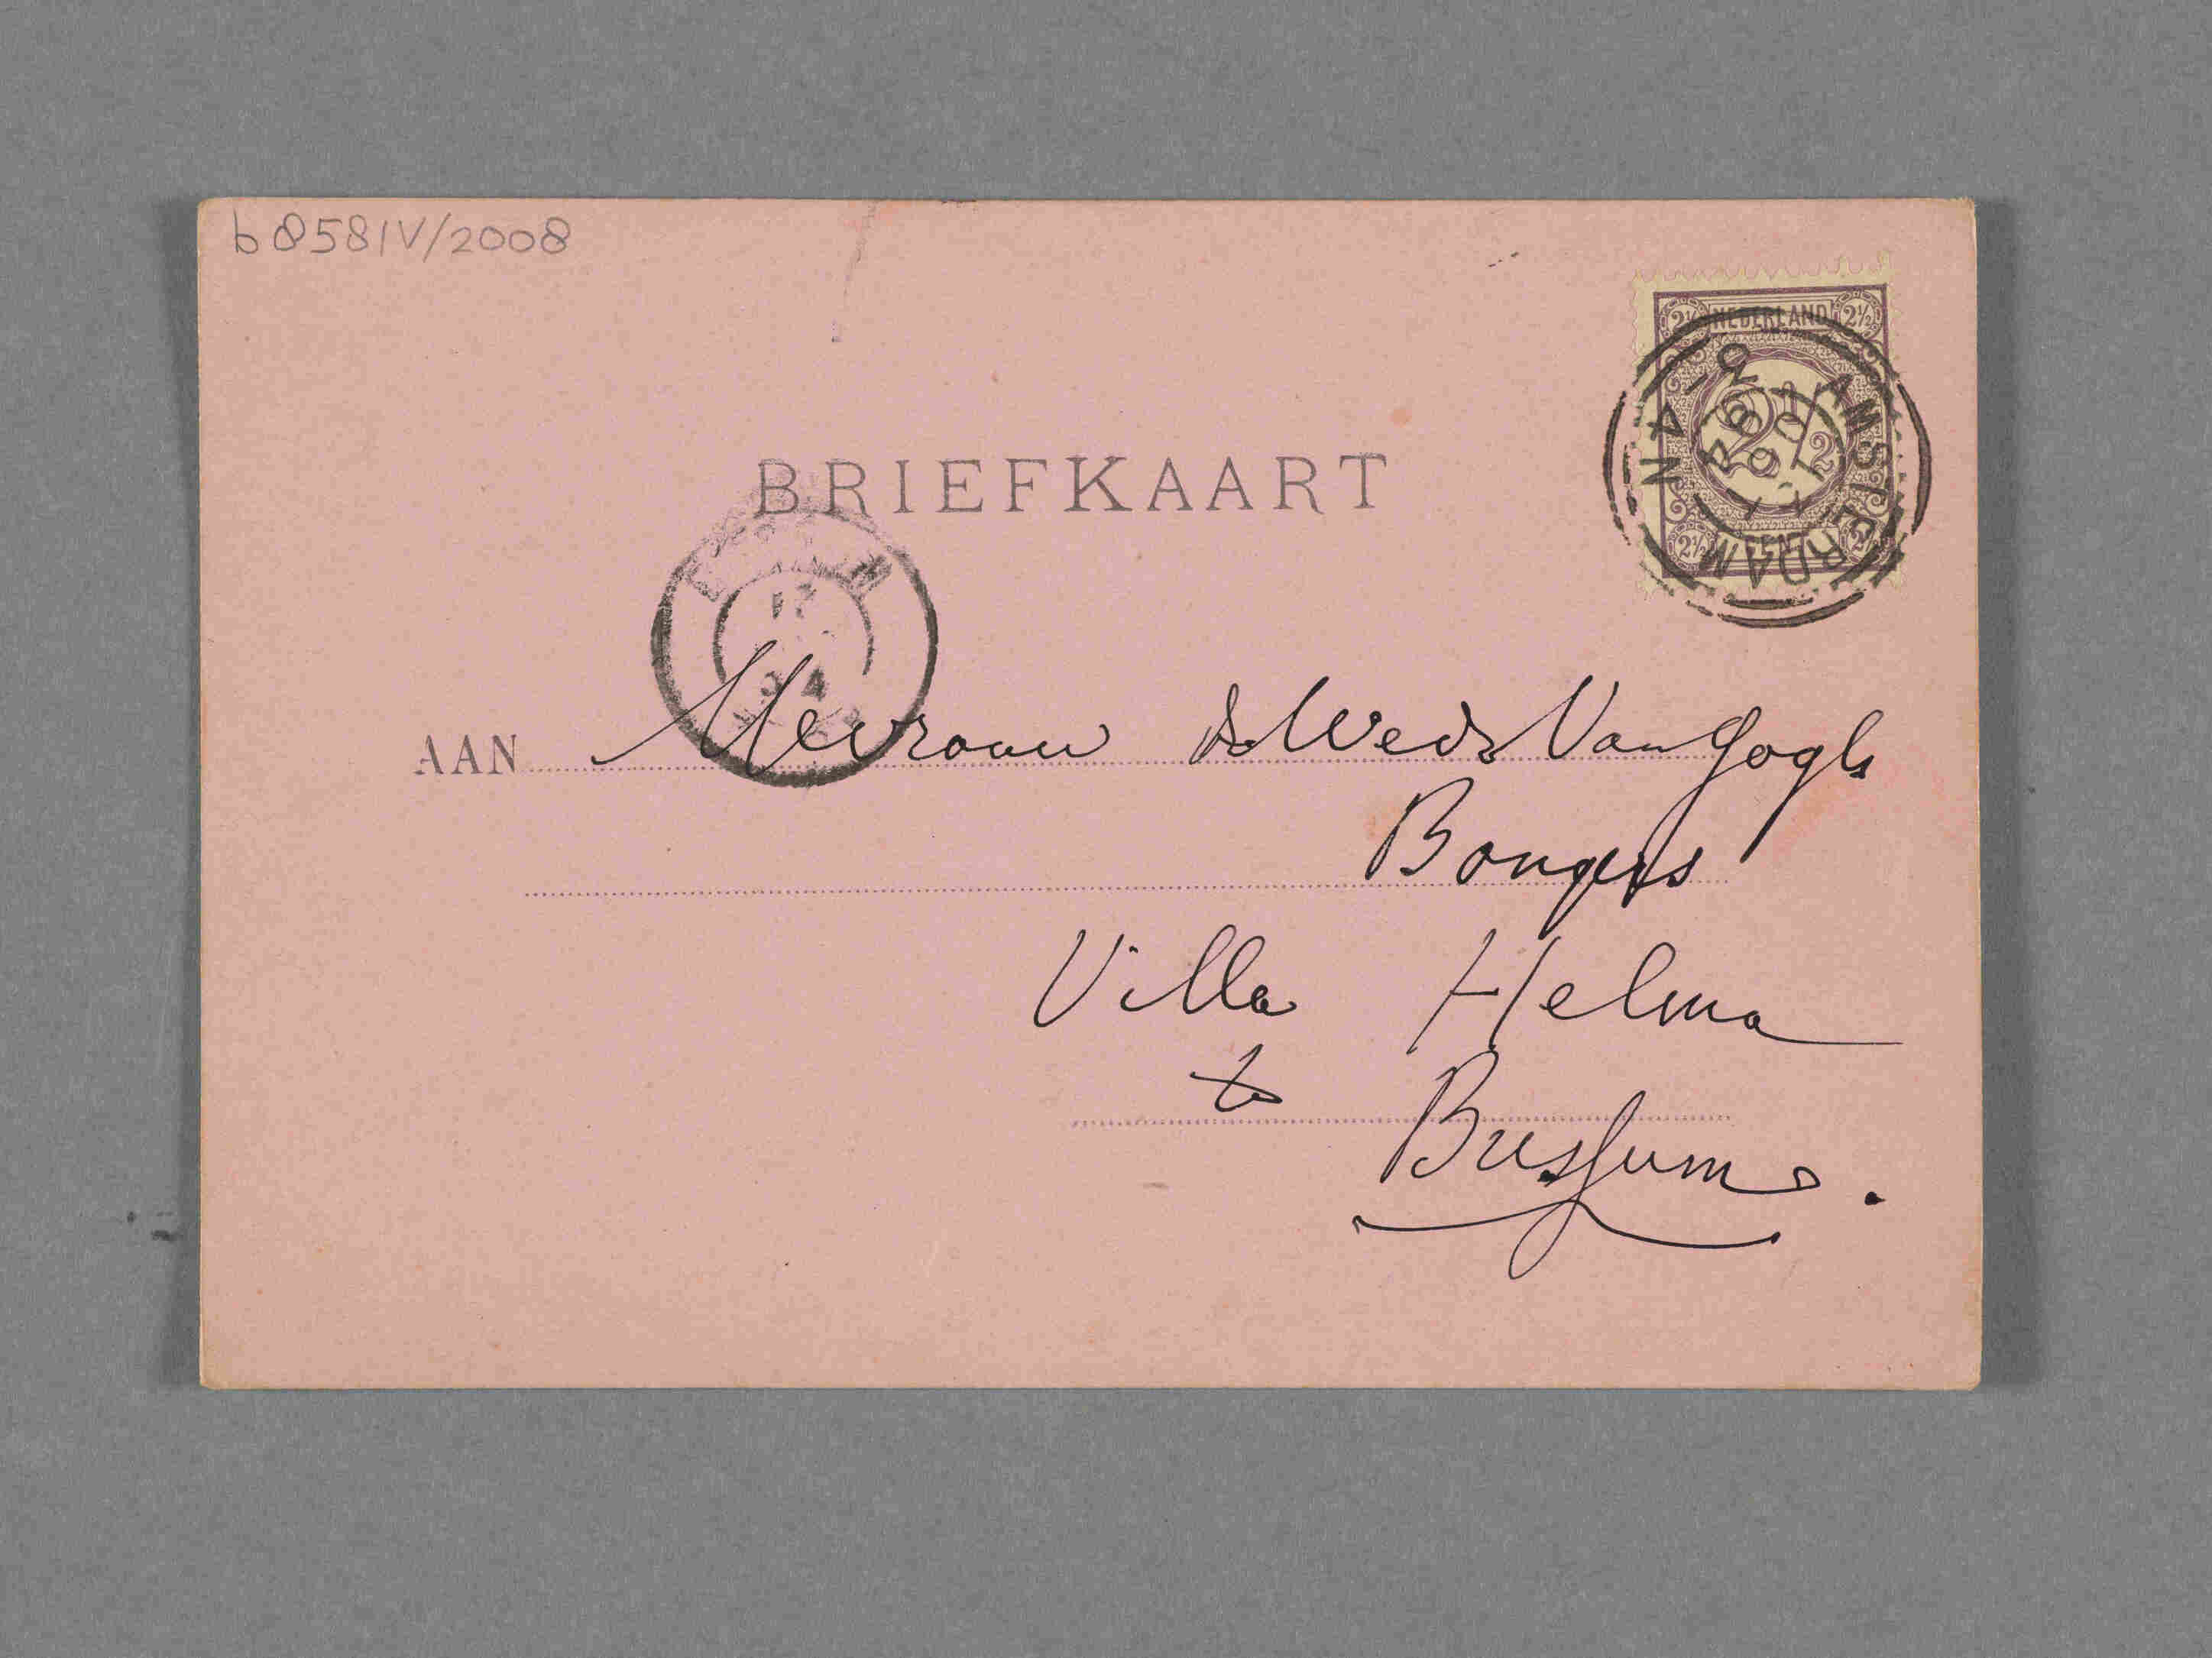 b8581V/2008
NEDERLAND
2½ 2½
2½
2½ 2½
AMSTERDAM
BRIEFKAART
AAN Mevrouw de Wed. Van Gogh
Bongers
Villa Helma
te
Bussum.